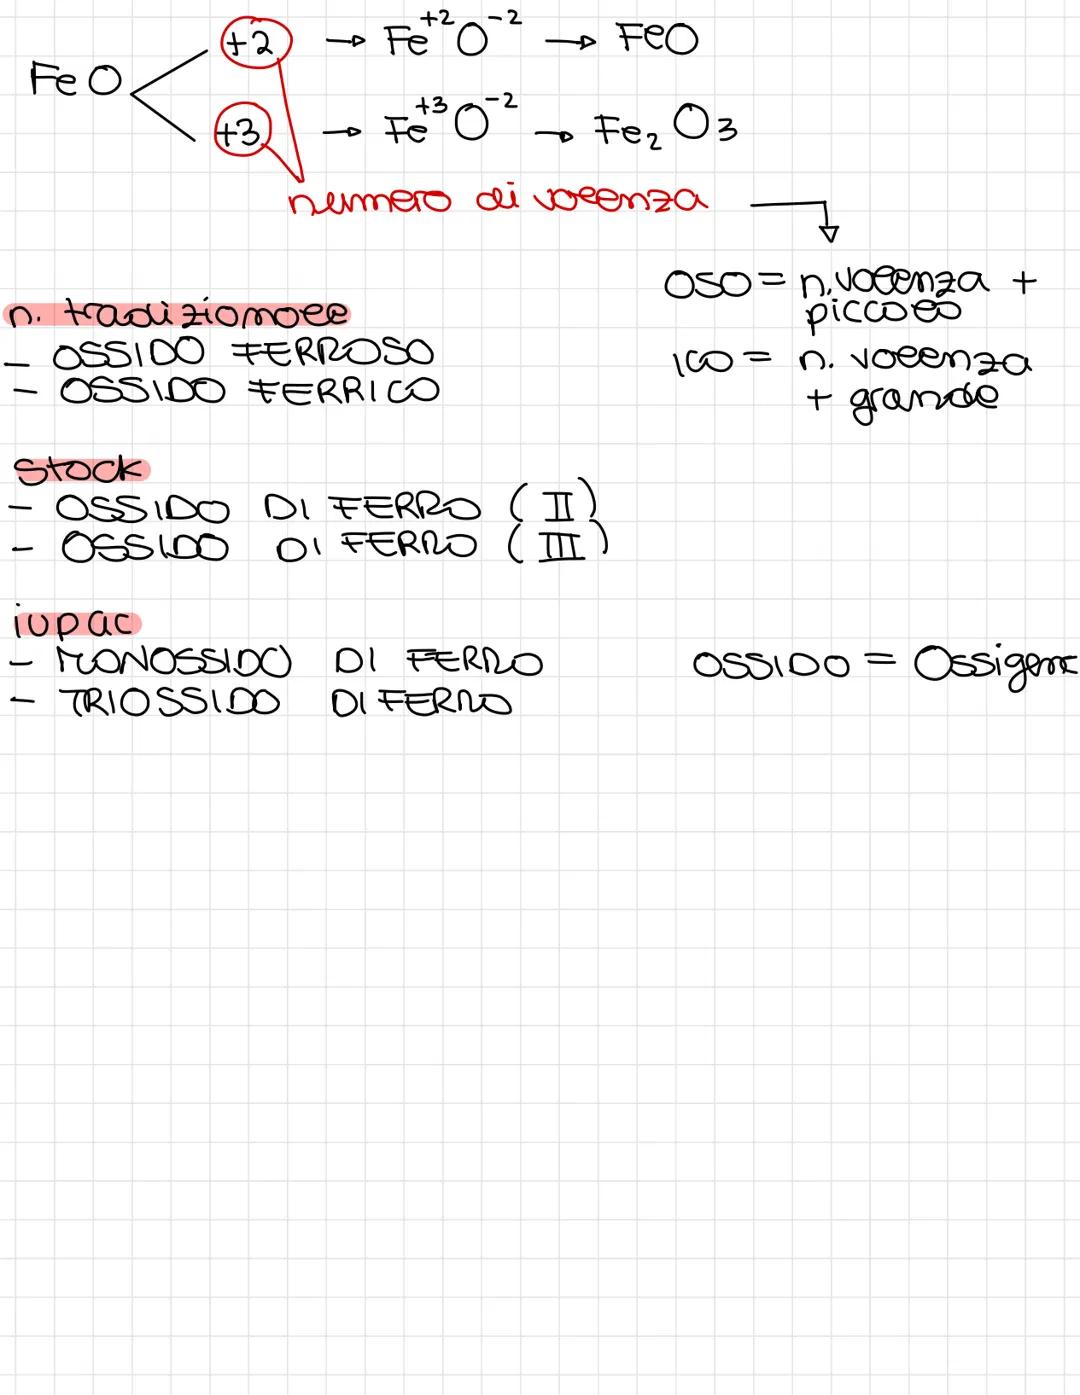 FeO
+2 → Fe⁺²O⁻² → FeO
+3 → Fe⁺³O⁻² → Fe₂O₃
numero di valenza
OSO = n. valenza +
piccolo
ICO = n. valenza
+ grande
n. tradizionale
- OSSIDO FERROSO
- OSSIDO FERRICO
stock
- OSSIDO DI FERRO (II)
- OSSIDO DI FERRO (III)
iupac
- MONOSSIDO DI FERRO
- TRIOSSIDO DI FERRO
OSSIDO = Ossigeno